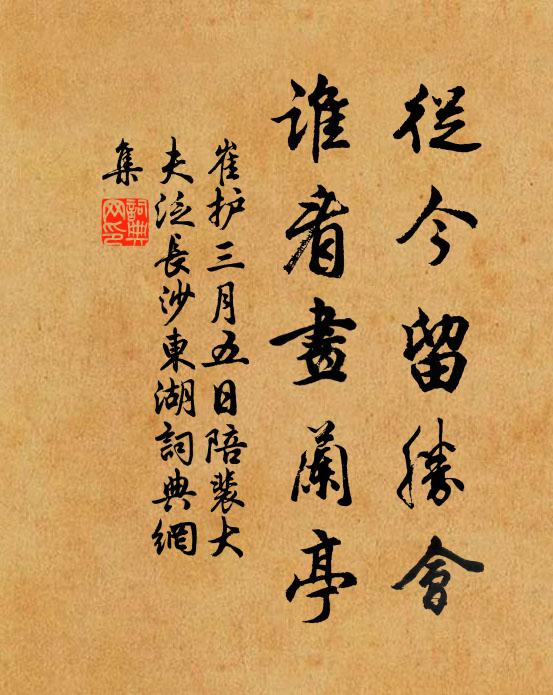 從今留勝會
誰看畫蘭亭
崔护三月五日陪裴大
夫泛長沙東湖詞典網
集
詞典
网印